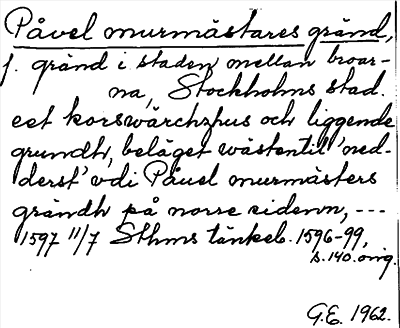 Påvel murmästares gränd,
f. gränd i staden mellan broar-
na, Stockholms stad.
eet korswärchzhus och liggende
grundh, beläget wästentil ned-
derst vdi Påuel murmästers
grändh på norre sidenn, ---
1597 11/7 Sthms tänkeb. 1596-99,
s. 140. orig.
G.E. 1962.